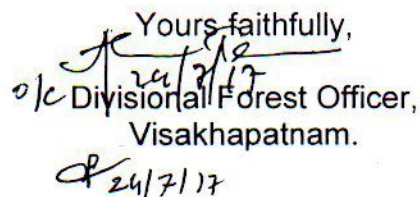 Yours faithfully,
24/7/17
o/c Divisional Forest Officer,
Visakhapatnam.
24/7/17